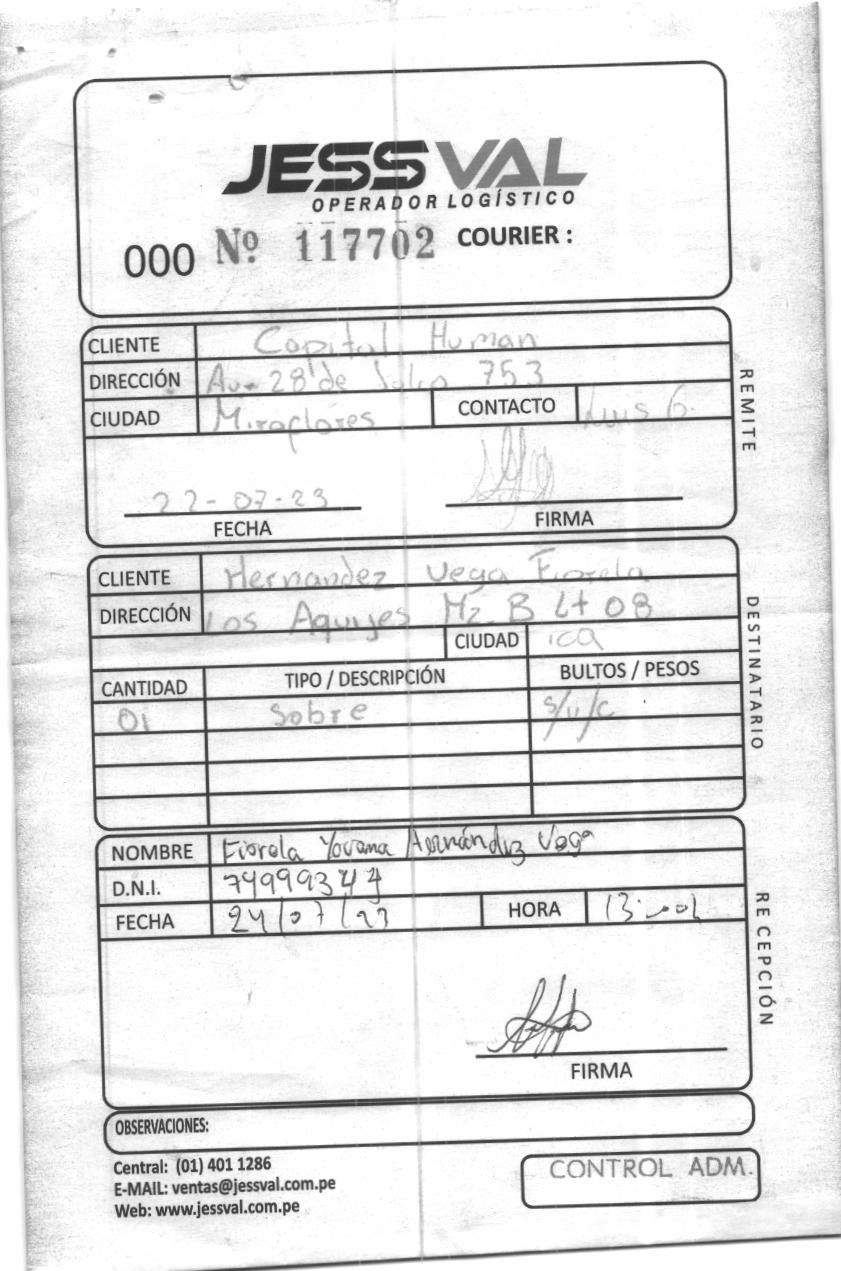 JESSVAL
OPERADOR LOGÍSTICO
000 Nº 117702 COURIER :
CLIENTE Capital Human
DIRECCIÓN Av. 28 de Julio 753
CIUDAD Miraflores CONTACTO Luis G.
22-07-23
FECHA FIRMA
REMITE
CLIENTE Hernandez Vega Fiorela
DIRECCIÓN Los Aquijes Mz B Lt 08
CIUDAD ica
CANTIDAD TIPO / DESCRIPCIÓN BULTOS / PESOS
01 Sobre
DESTINATARIO
NOMBRE Fiorela Yovana Hernández Vega
D.N.I.
FECHA 24/07/23 HORA
FIRMA
RECEPCIÓN
OBSERVACIONES:
Central: (01) 401 1286
E-MAIL: ventas@jessval.com.pe
Web: www.jessval.com.pe
CONTROL ADM.